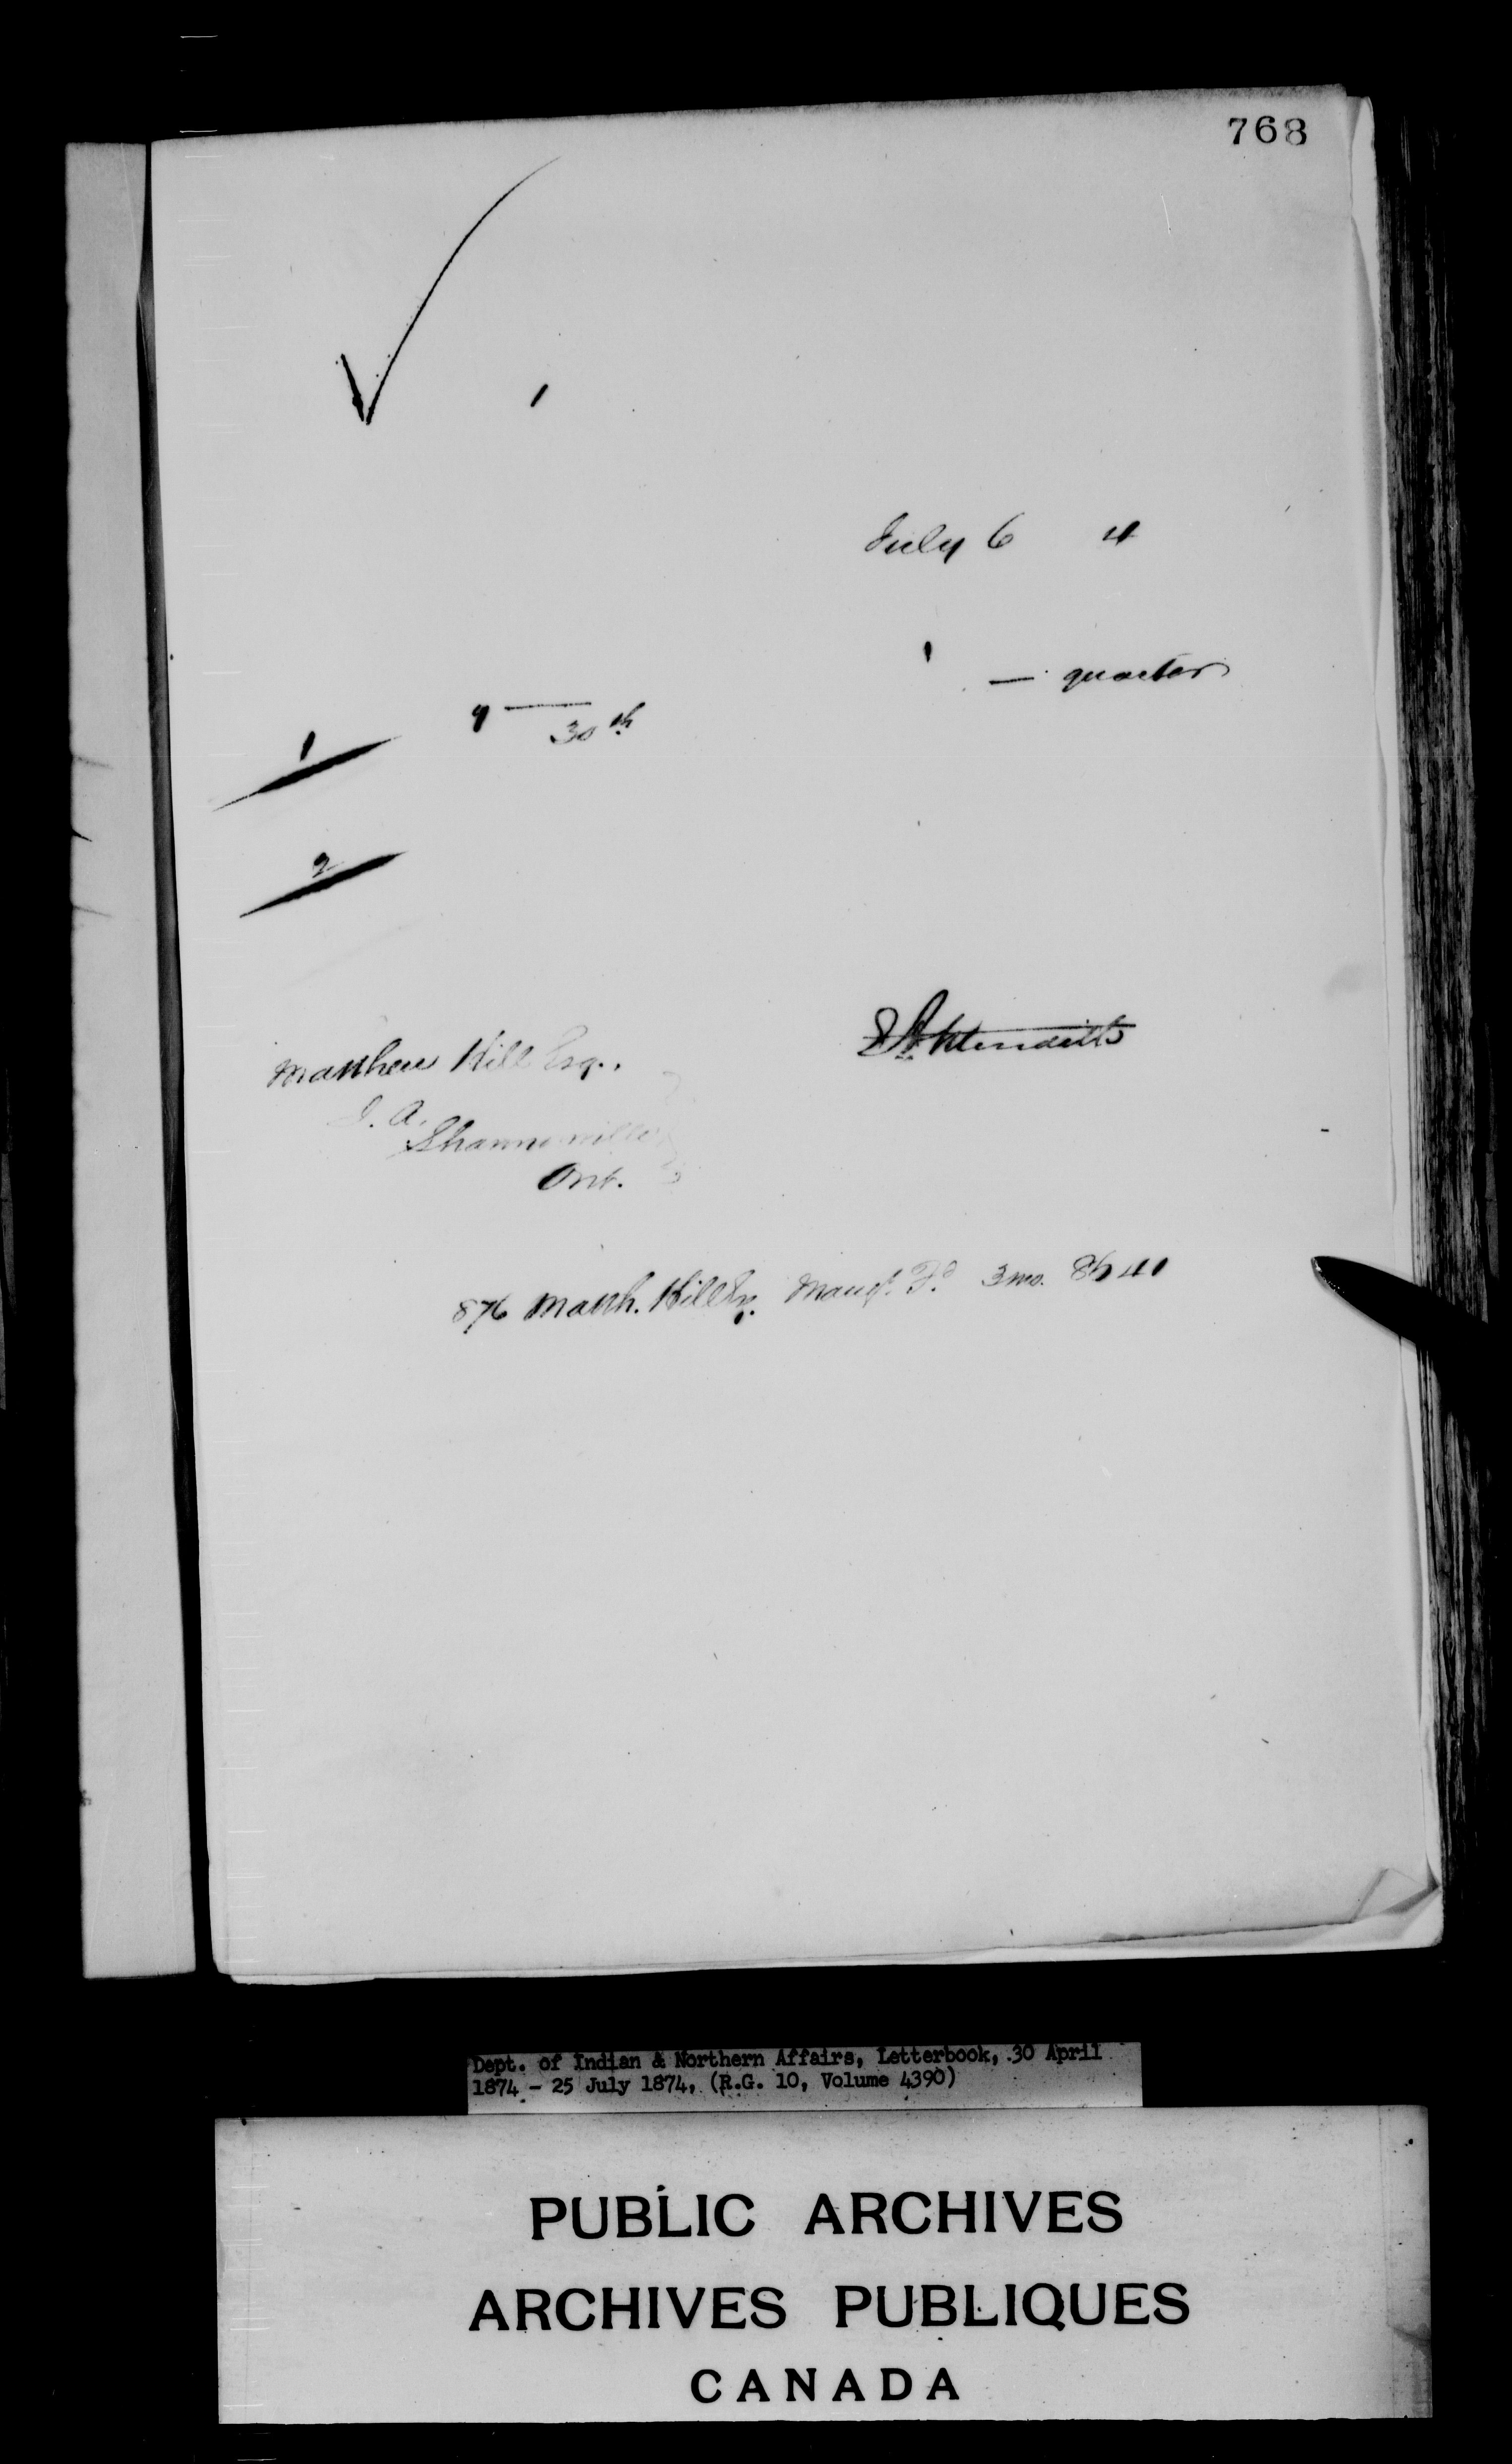 768
July 6 4
1 — quarter
1 9 — 30th
2
E A Meredith
Matthew Hill Esq.,
I. A.
Shannonville
Ont.
876 Matth. Hill Esq. Mang't F'd 3 mo. 86 41
Dept. of Indian & Northern Affairs, Letterbook, 30 April
1874 - 25 July 1874, (R.G. 10, Volume 4390)
PUBLIC ARCHIVES
ARCHIVES PUBLIQUES
CANADA